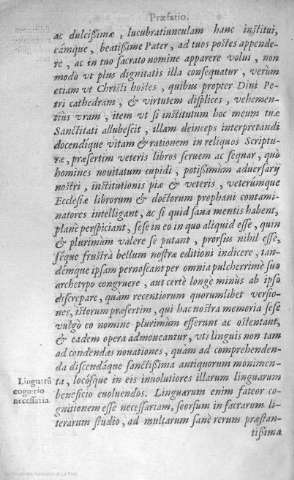 Præfatio.
ac dulcissimæ, lucubratiunculam hanc institui,
eámque, beatissime Pater, ad tuos postes appende-
re, ac in tuo sacrato nomine apparere volui, non
modò vt plus dignitatis illa consequatur, verùm
etiam vt Christi hostes, quibus propter Diui Pe-
tri cathedram, & virtutem displices, vehemen-
tiùs vram, item vt si institutum hoc meum tuæ
Sanctitati allubescit, illam deinceps interpretandi
docendíque vitam & rationem in reliquos Scriptu-
ræ, præsertim veteris libros seruem ac sequar, quò
homines nouitatum cupidi, potissimùm aduersarij
nostri, institutionis piæ & veteris, veterúmque
Ecclesiæ librorum & doctorum prophani contami-
natores intelligant, ac si quid sanæ mentis habent,
planè perspiciant, sese in eo in quo aliquid esse, quin
& plurimùm valere se putant, prorsus nihil esse,
séque frustrà bellum nostræ editioni indicere, tan-
démque ipsam pernoscant per omnia pulcherrimè suo
archetypo congruere, aut certè longè minùs ab ipso
discrepare, quàm recentiorum quorumlibet versio-
nes, istorum præsertim, qui hac nostra memoria sese
vulgò eo nomine plurimùm efferunt ac ostentant,
& eadem opera admoneantur, vti linguis non tam
ad condendas nouationes, quàm ad comprehenden-
da discendáque sanctissima antiquorum monimen-
ta, locósque in eis inuolutiores illarum linguarum
beneficio enoluendos. Linguarum enim fateor co-
gnitionem esse necessariam, seorsum in sacrarum li-
terarum studio, ad multarum sanè rerum præstan-
tissima
Linguarũ
cognitio
necessaria.